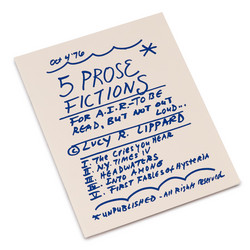 oct 4 '76
*
5 PROSE
FICTIONS
FOR A.I.R.-TO BE
READ, BUT NOT OUT
LOUD...
© LUCY R. LIPPARD
I. THE CRIES YOU HEAR
II. N.Y. TIMES IV
III. HEADWATERS
IV. INTO AMONG
V. FIRST FABLES OF HYSTERIA
* UNPUBLISHED - All Rights reserved.